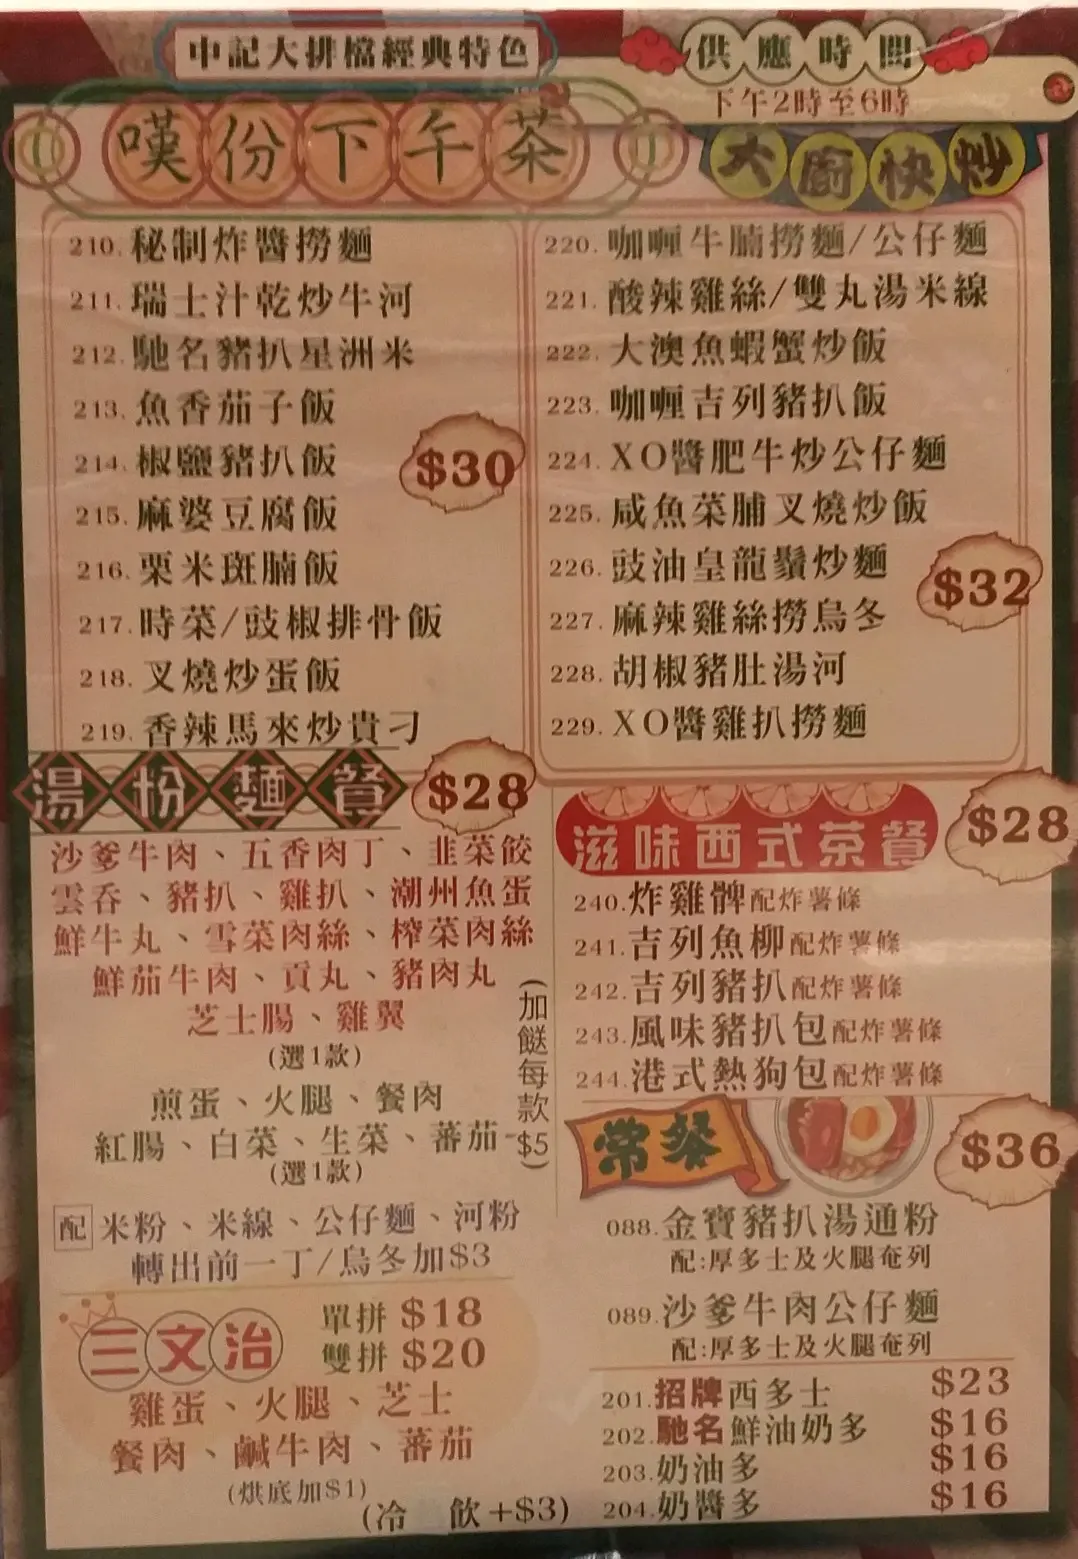 中記大排檔經典特色
供應時間
下午2時至6時
嘆份下午茶
大廚快炒
210.秘制炸醬撈麵
211.瑞士汁乾炒牛河
212.馳名豬扒星洲米
213.魚香茄子飯
214.椒鹽豬扒飯
215.麻婆豆腐飯
216.栗米斑腩飯
217.時菜/豉椒排骨飯
218.叉燒炒蛋飯
219.香辣馬來炒貴刁
$30
220.咖喱牛腩撈麵/公仔麵
221.酸辣雞絲/雙丸湯米線
222.大澳魚蝦蟹炒飯
223.咖喱吉列豬扒飯
224.XO醬肥牛炒公仔麵
225.咸魚菜脯叉燒炒飯
226.豉油皇龍鬚炒麵
227.麻辣雞絲撈烏冬
228.胡椒豬肚湯河
229.XO醬雞扒撈麵
$32
湯粉麵餐
$28
沙爹牛肉、五香肉丁、韭菜餃
雲吞、豬扒、雞扒、潮州魚蛋
鮮牛丸、雪菜肉絲、榨菜肉絲
鮮茄牛肉、貢丸、豬肉丸
芝士腸、雞翼
(選1款)
煎蛋、火腿、餐肉
紅腸、白菜、生菜、蕃茄
(選1款)
(加餸每款$5)
配 米粉、米線、公仔麵、河粉
轉出前一丁/烏冬加$3
三文治
單拼 $18
雙拼 $20
雞蛋、火腿、芝士
餐肉、鹹牛肉、蕃茄
(烘底加$1)
(冷 飲+$3)
滋味西式茶餐
$28
240.炸雞髀配炸薯條
241.吉列魚柳配炸薯條
242.吉列豬扒配炸薯條
243.風味豬扒包配炸薯條
244.港式熱狗包配炸薯條
常餐
$36
088.金寶豬扒湯通粉
配:厚多士及火腿奄列
089.沙爹牛肉公仔麵
配:厚多士及火腿奄列
201.招牌西多士 $23
202.馳名鮮油奶多 $16
203.奶油多 $16
204.奶醬多 $16